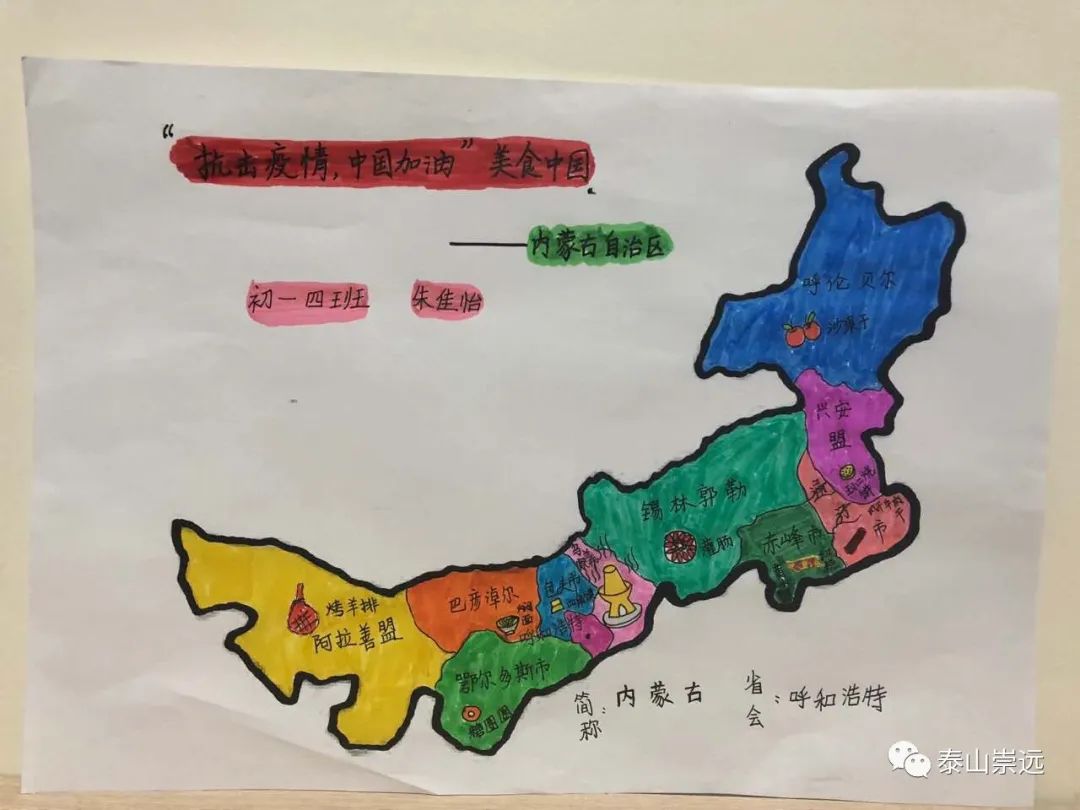 “抗击疫情,中国加油”美食中国.
——内蒙古自治区
初一四班 朱佳怡
呼伦贝尔
沙果干
兴安
盟
锡林郭勒
灌肠
赤峰市
通
市
包头市
巴彦淖尔
烤羊排
阿拉善盟
呼和浩特
鄂尔多斯市
糖圈圈
简称:内蒙古
省会:呼和浩特
泰山崇远